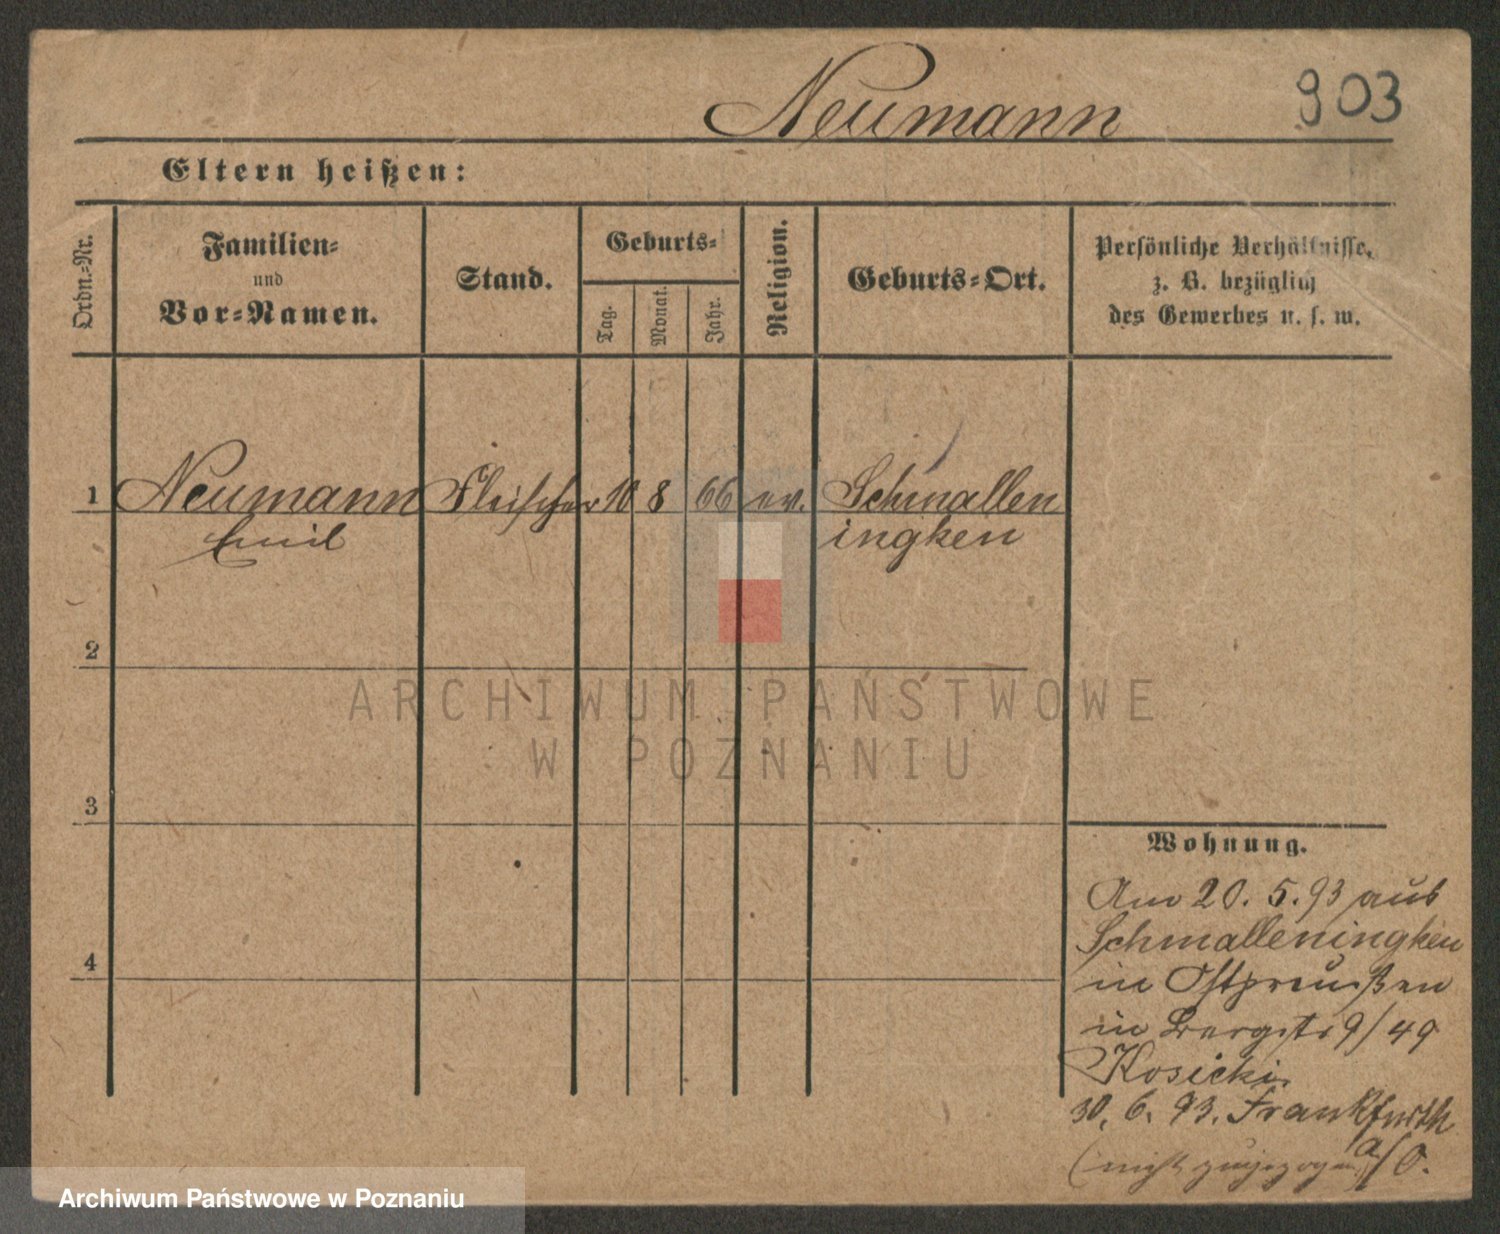 Neumann 903
Eltern heißen:
Ordn.-Nr.
Familien-
und
Vor-Namen.
Stand.
Geburts-
Tag.
Monat.
Jahr.
Religion.
Geburts-Ort.
Persönliche Verhältnisse,
z. B. bezüglich
des Gewerbes u. s. w.
1 Neumann Fleischer 10 8 66 ev. Schmallen
Emil ingken
2
ARCHIWUM PAŃSTWOWE
W POZNANIU
3
4
Wohnung.
Am 20. 5. 93 aus
Schmalleningken
in Ostpreußen
in Bergstr 9/49
Kosicki.
30. 6. 93. Frankfurth
a/O.
(nicht zugezogen
Archiwum Państwowe w Poznaniu